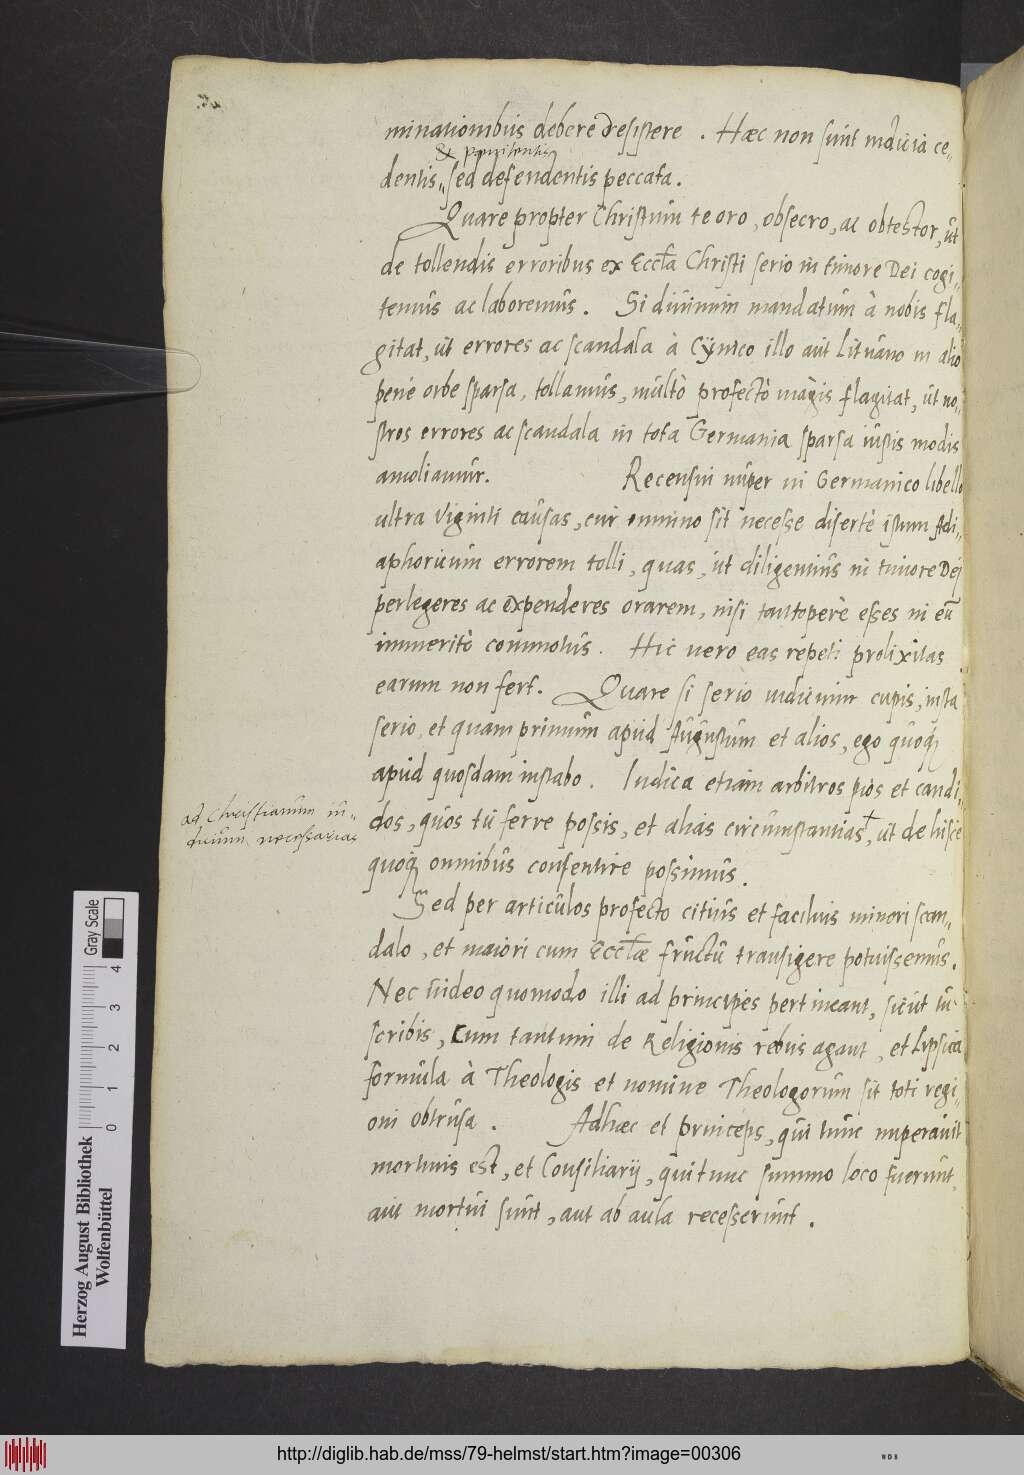 minationibus debere desistere . Hæc non sunt indicia ce„
& pœnitentis
dentis„ sed defendentis peccata.
Quare propter Christum te oro, obsecro, ac obtestor, ut
de tollendis erroribus ex Eccl̄a Christi serio in timore Dei cogi„
temus ac laboremus. Si divinum mandatum à nobis fla„
gitat, ut errores ac scandala à Cynico illo aut Lituano in alio
penè orbe sparsa, tollamus, multò profectò magis flagitat, ut no„
stros errores ac scandala in tota Germania sparsa iustis modis
amoliamur. Recensui nuper in Germanico libello
ultra viginti causas, cur omnino sit necesse disertè istum Adi„
aphoricum errorem tolli, quas, ut diligentius in timore Dei
perlegeres ac expenderes orarem, nisi tantoperè esses in eū
immeritò commotus. Hic vero eas repeti prolixitas
earum non fert. Quare si seriò iudicium cupis, insta
serio, et quam primum apud Augustum et alios, ego quoq;
apud quosdam instabo. Iudica etiam arbitros pios et candi„
dos, quos tu ferre possis, et alias circumstantias†, ut de hisce
ad Christianum iu„
dicium necessarias
quoq; omnibus consentire possimus.
Sed per articulos profecto citius et facilius minori scan„
dalo, et maiori cum Eccl̄æ fructu transigere potuissemus.
Nec video quomodo illi ad principes pertineant, sicut tu
scribis, cum tantum de Religionis rebus agant, et Lipsica
formula à Theologis et nomine Theologorum sit toti regi„
oni obtrusa. Adhæc et princeps, qui tunc imperavit
mortuus est, et Consiliarij, qui tunc summo loco fuerunt,
aut mortui sunt, aut ab aula recesserunt.
Gray Scale
0 1 2 3 4
Herzog August Bibliothek
Wolfenbüttel
http://diglib.hab.de/mss/79-helmst/start.htm?image=00306